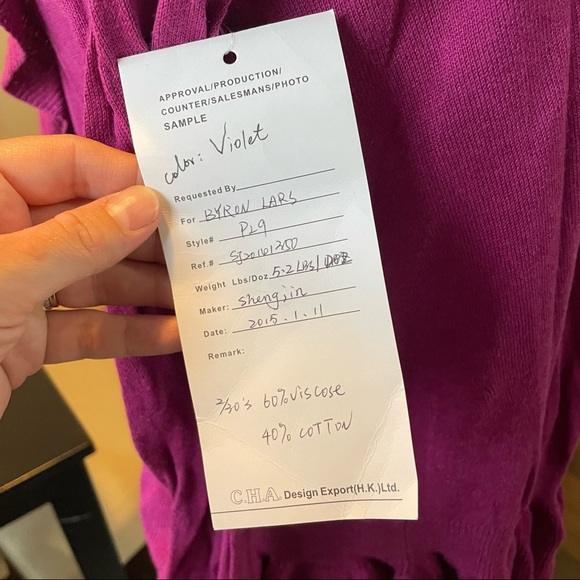 APPROVAL/PRODUCTION/
COUNTER/SALESMANS/PHOTO
SAMPLE
color: Violet
Requested By
For BYRON LARS
Style# P29
Ref.#
Weight Lbs/Doz 5.2 LBS/DOZ
Maker: Shengjin
Date: 2015.1.11
Remark:
2/30's 60% Viscose
40% COTTON
C.H.A. Design Export(H.K.)Ltd.